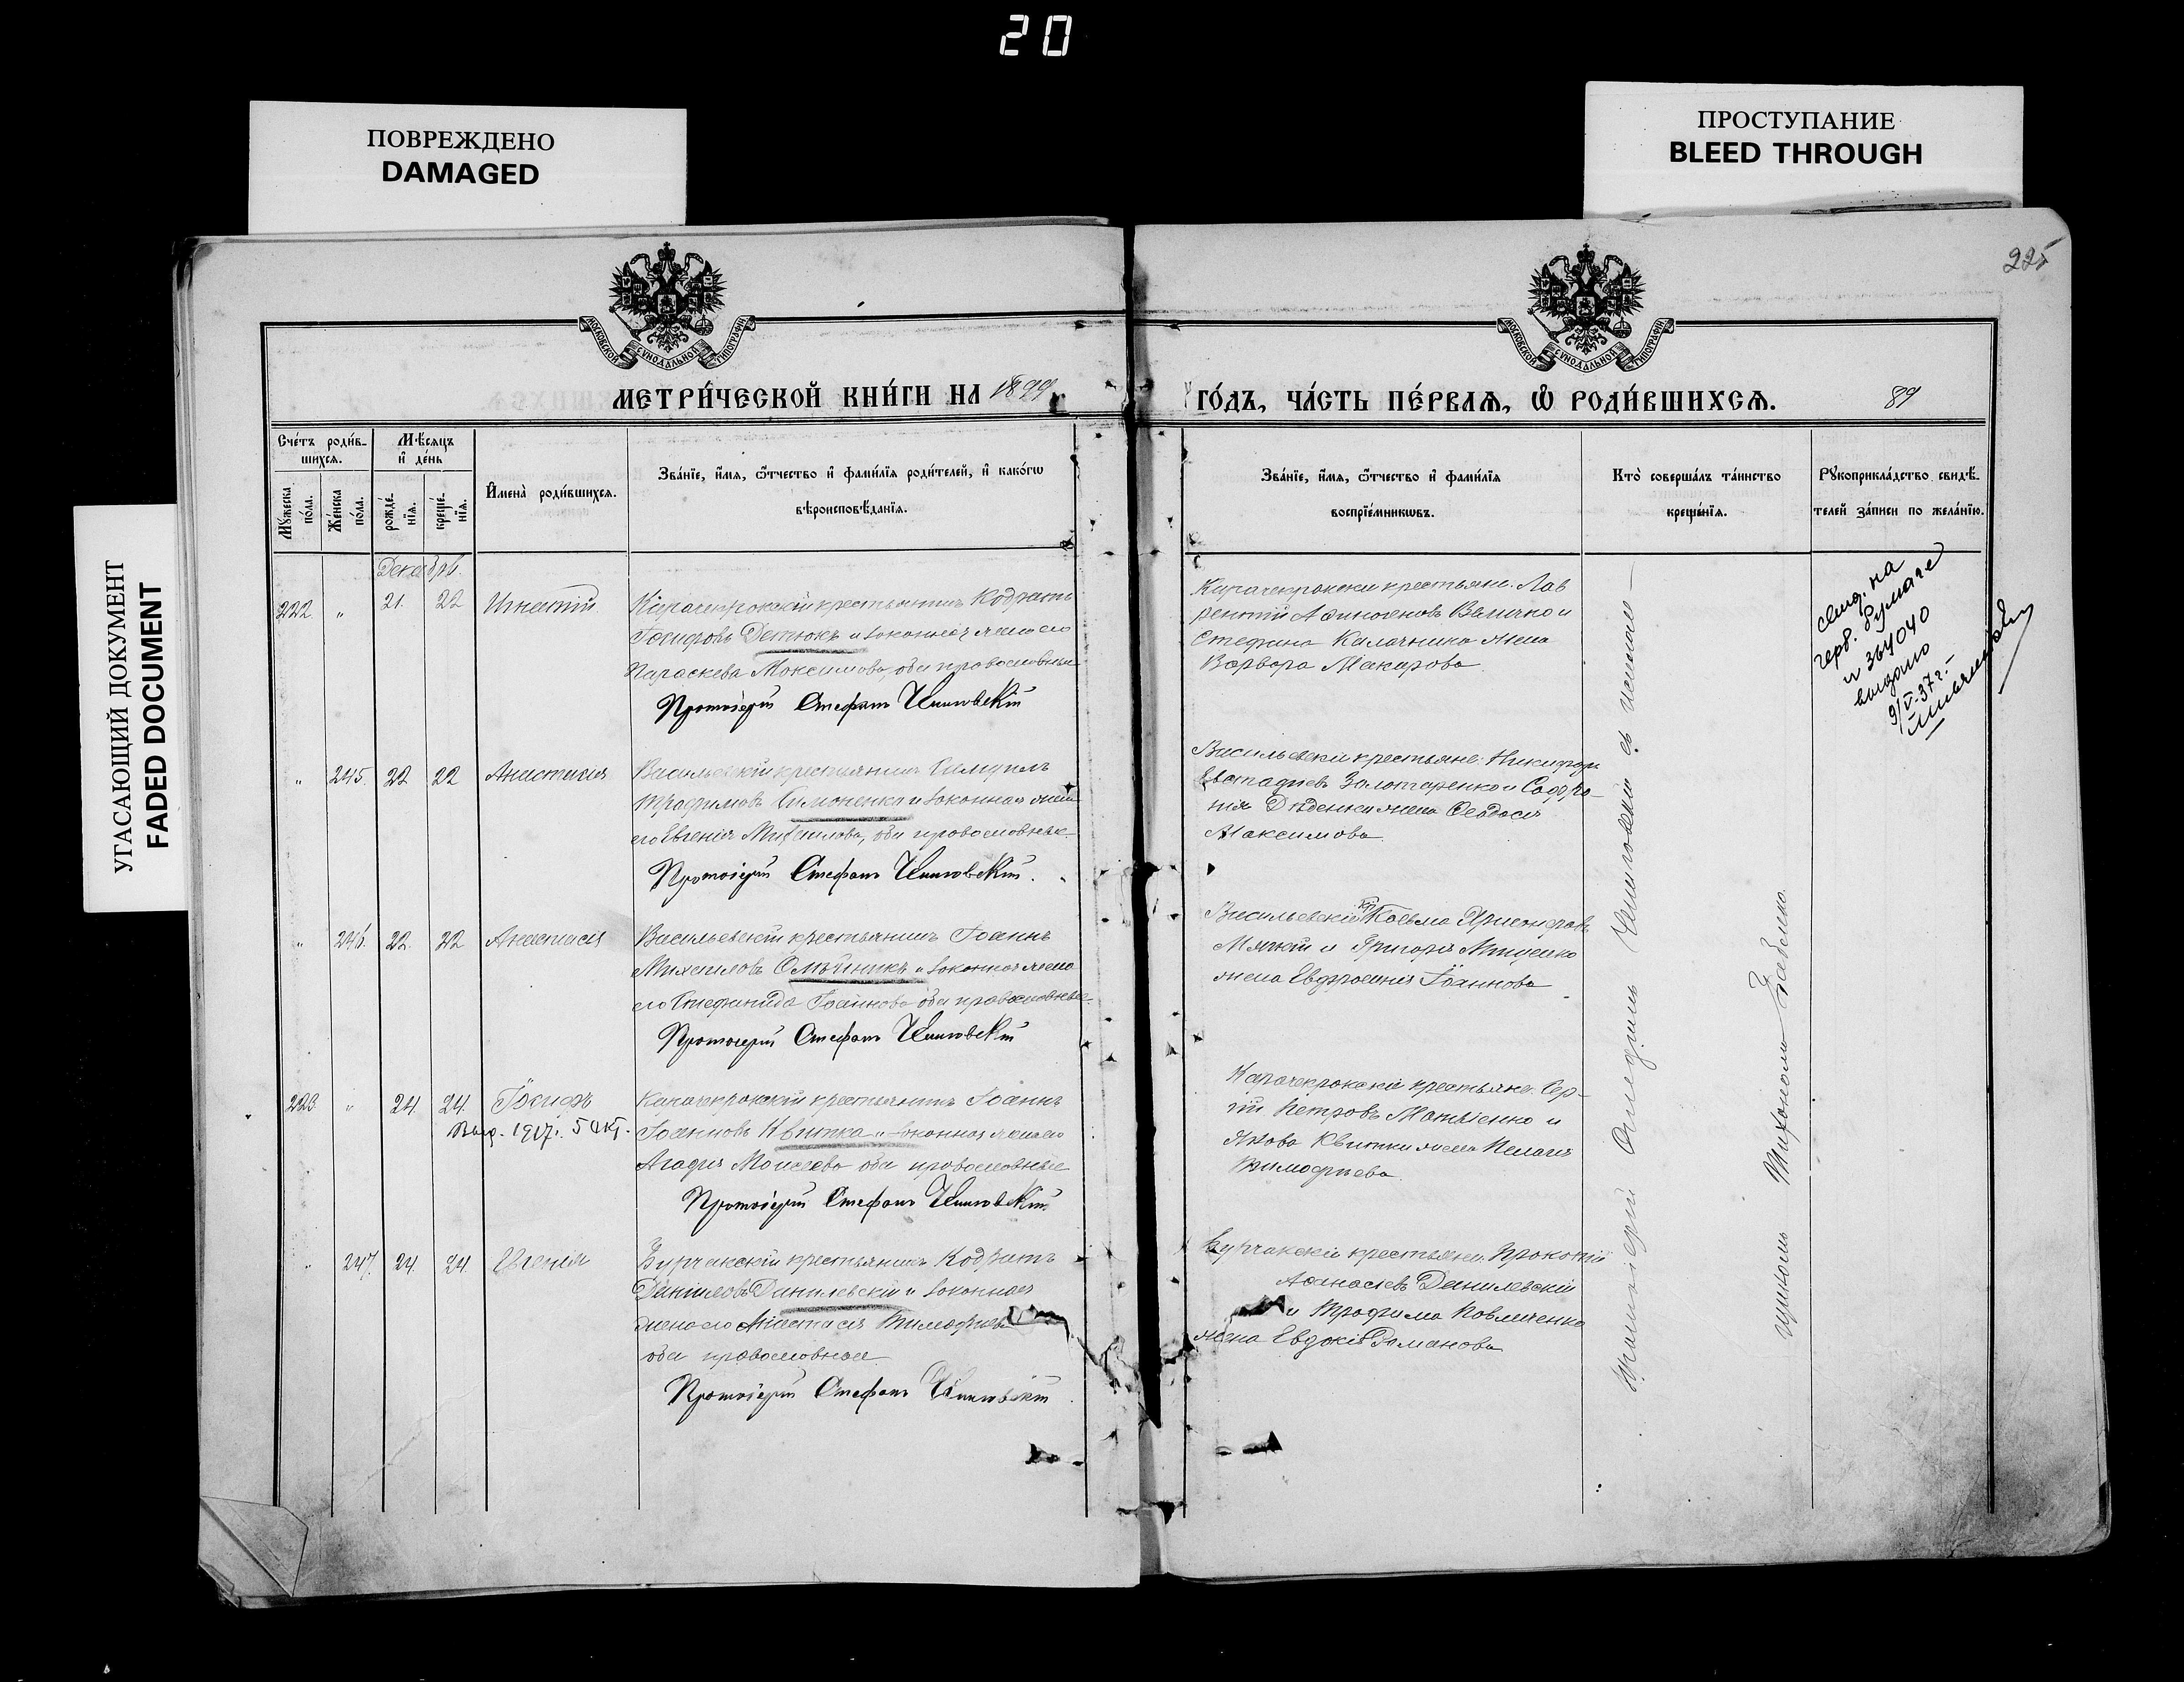 20
ПОВРЕЖДЕНО
DAMAGED
ПРОСТУПАНИЕ
BLEED THROUGH
УГАСАЮЩИЙ ДОКУМЕНТ
FADED DOCUMENT
225
МОСКОВСКОЙ СѴНОДАЛЬНОЙ ТИПОГРАФІИ
МОСКОВСКОЙ СѴНОДАЛЬНОЙ ТИПОГРАФІИ
МЕТРИ́ЧЕСКОЙ КНИ́ГИ НА 1899
ГО́ДЪ, ЧА́СТЬ ПЕ́РВАѦ, Ѽ РОДИ́ВШИХСѦ.
89
Сче́тъ роди́в-
шихсѧ.
Мꙋ́жеска по́ла.
Же́нска по́ла.
Мѣ́сѧцъ
и҆ де́нь
рожде́-
нїѧ.
креще́-
нїѧ.
И҆мена̀ роди́вшихсѧ.
Зва́нїе, и҆́мѧ, ѻ҆́тчество и҆ фами́лїѧ роди́телей, и҆ како́гѡ
вѣроисповѣ́данїѧ.
Зва́нїе, и҆́мѧ, ѻ҆́тчество и҆ фами́лїѧ
воспрїе́мникѡвъ.
Кто̀ соверша́лъ та́инство
креще́нїѧ.
Рꙋкоприкла́дство свидѣ́-
телей за́писи по жела́нїю.
Декабрь.
222 " 21. 22 Игнатій
Карачекрокскій крестьянинъ Кодратъ
Іосифовъ Детюкъ и законная жена его
Параскева Максимова, оба православные
Протоіерей Стефанъ
Карачекрокскіи крестьяне. Лав
рентій Афиногеновъ Величко и
Стефана Калачника жена
Варвара Макарова
свид. на
герб. бумаге
N 364040
выдано
9/V-37 г.
" 245. 22 22 Анастасія
Васильевскій крестьянинъ
Трофимовъ Симоненко и законная жена
его Евгенія Михаилова, оба православные.
Протоіерей Стефанъ
Васильевскіи крестьяне. Никифоръ
Евстафіевъ Золотаренко и Софро-
нія Дѣденки жена Феодосія
Максимова.
" 246. 22. 22 Анастасія
Васильевскій крестьянинъ Іоаннъ
Михаиловъ Олѣйникъ и законная жена
его Стефанида Іоаннова оба православные.
Протоіерей Стефанъ
Васильевскіи кр. Козьма
Мягкій и Григорія Мищенко
жена Евфросинія Іоаннова
223 " 24. 24. Іосифъ
Выд. 1917г. 5 окт.
Карачекрокскій крестьянинъ Іоаннъ
Іоанновъ Квитка и законная жена его
Агафія Моисеева оба православные
Протоіерей Стефанъ
Карачекрокскіи крестьяне. Сер-
гій Петровъ Матвіенко и
Якова Квитки жена Пелагія
Тимофѣева.
" 247. 24. 24. Евгенія
Бурчакскій крестьянинъ Кодратъ
Даніиловъ Данилевскій и законная
жена его Анастасія Тимофѣева
оба православные
Протоіерей Стефанъ
Бурчакскіи крестьяне. Прокопій
Афанасіевъ Данилевскій
и Трофима Коваленко
жена Евдокія Романова
Протоіерей съ псалом-
щикомъ Тихономъ Бабенко